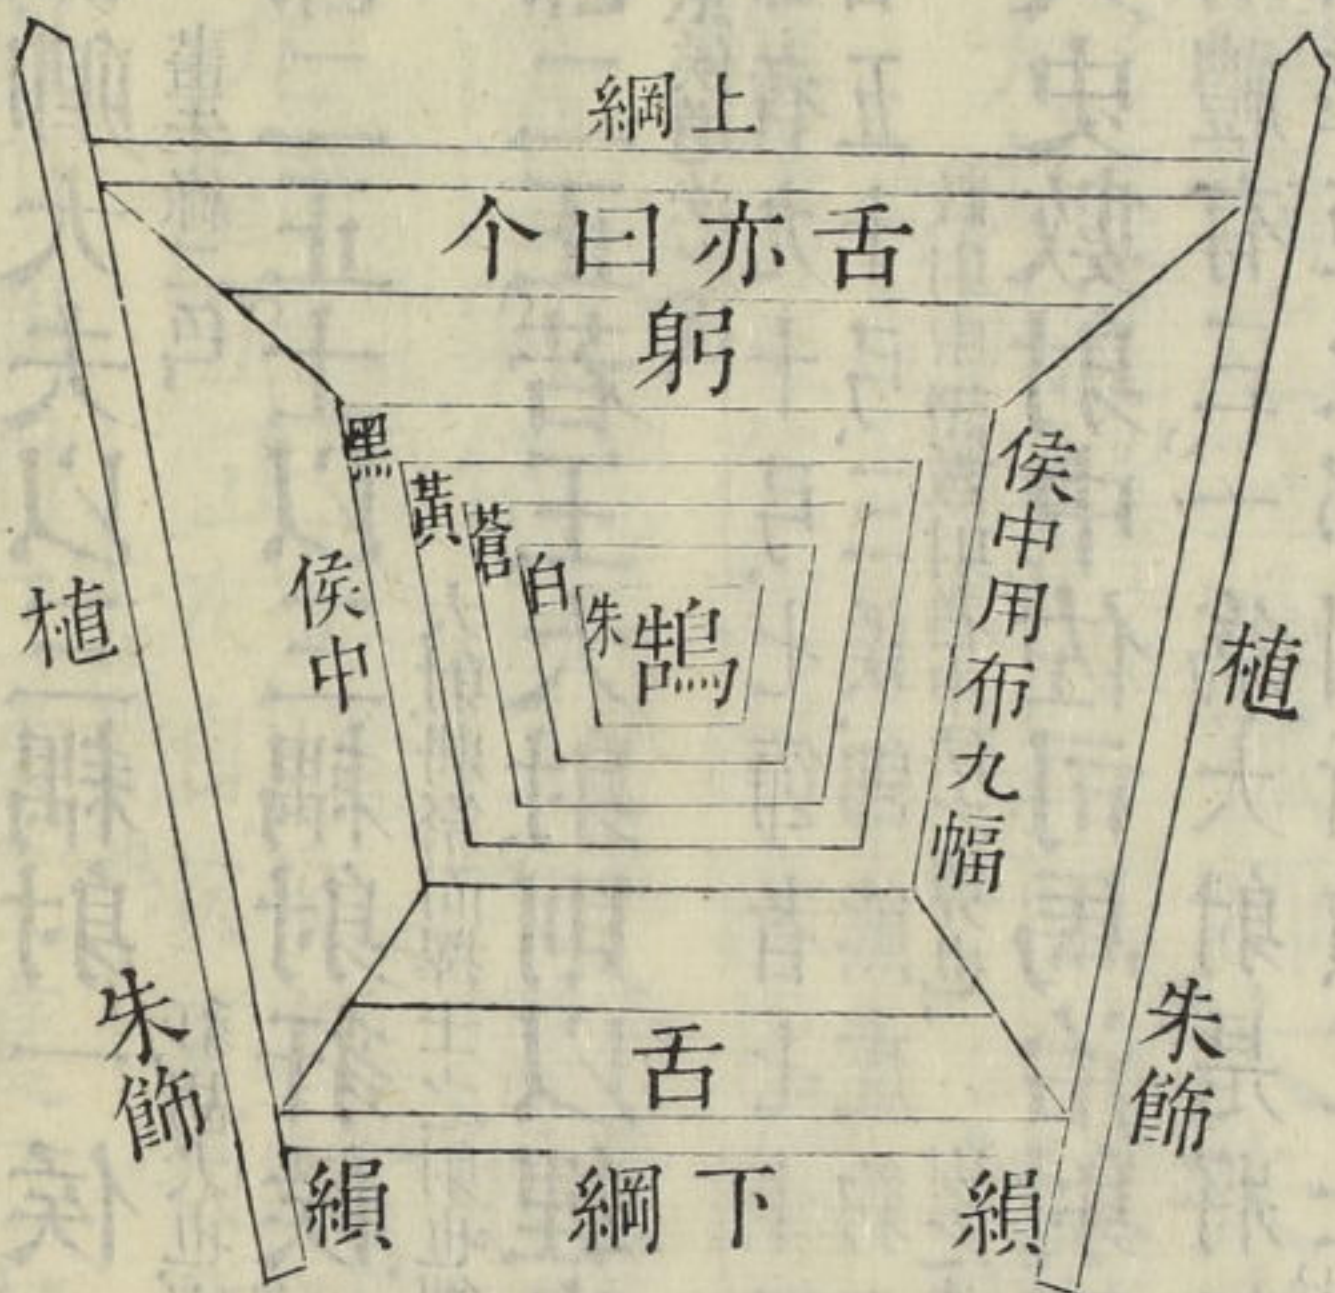 上綱
舌亦曰个
躬
侯中用布九幅
黑
黃
蒼
白
朱
鵠
侯中
植
植
朱飾
朱飾
舌
縜
下綱
縜